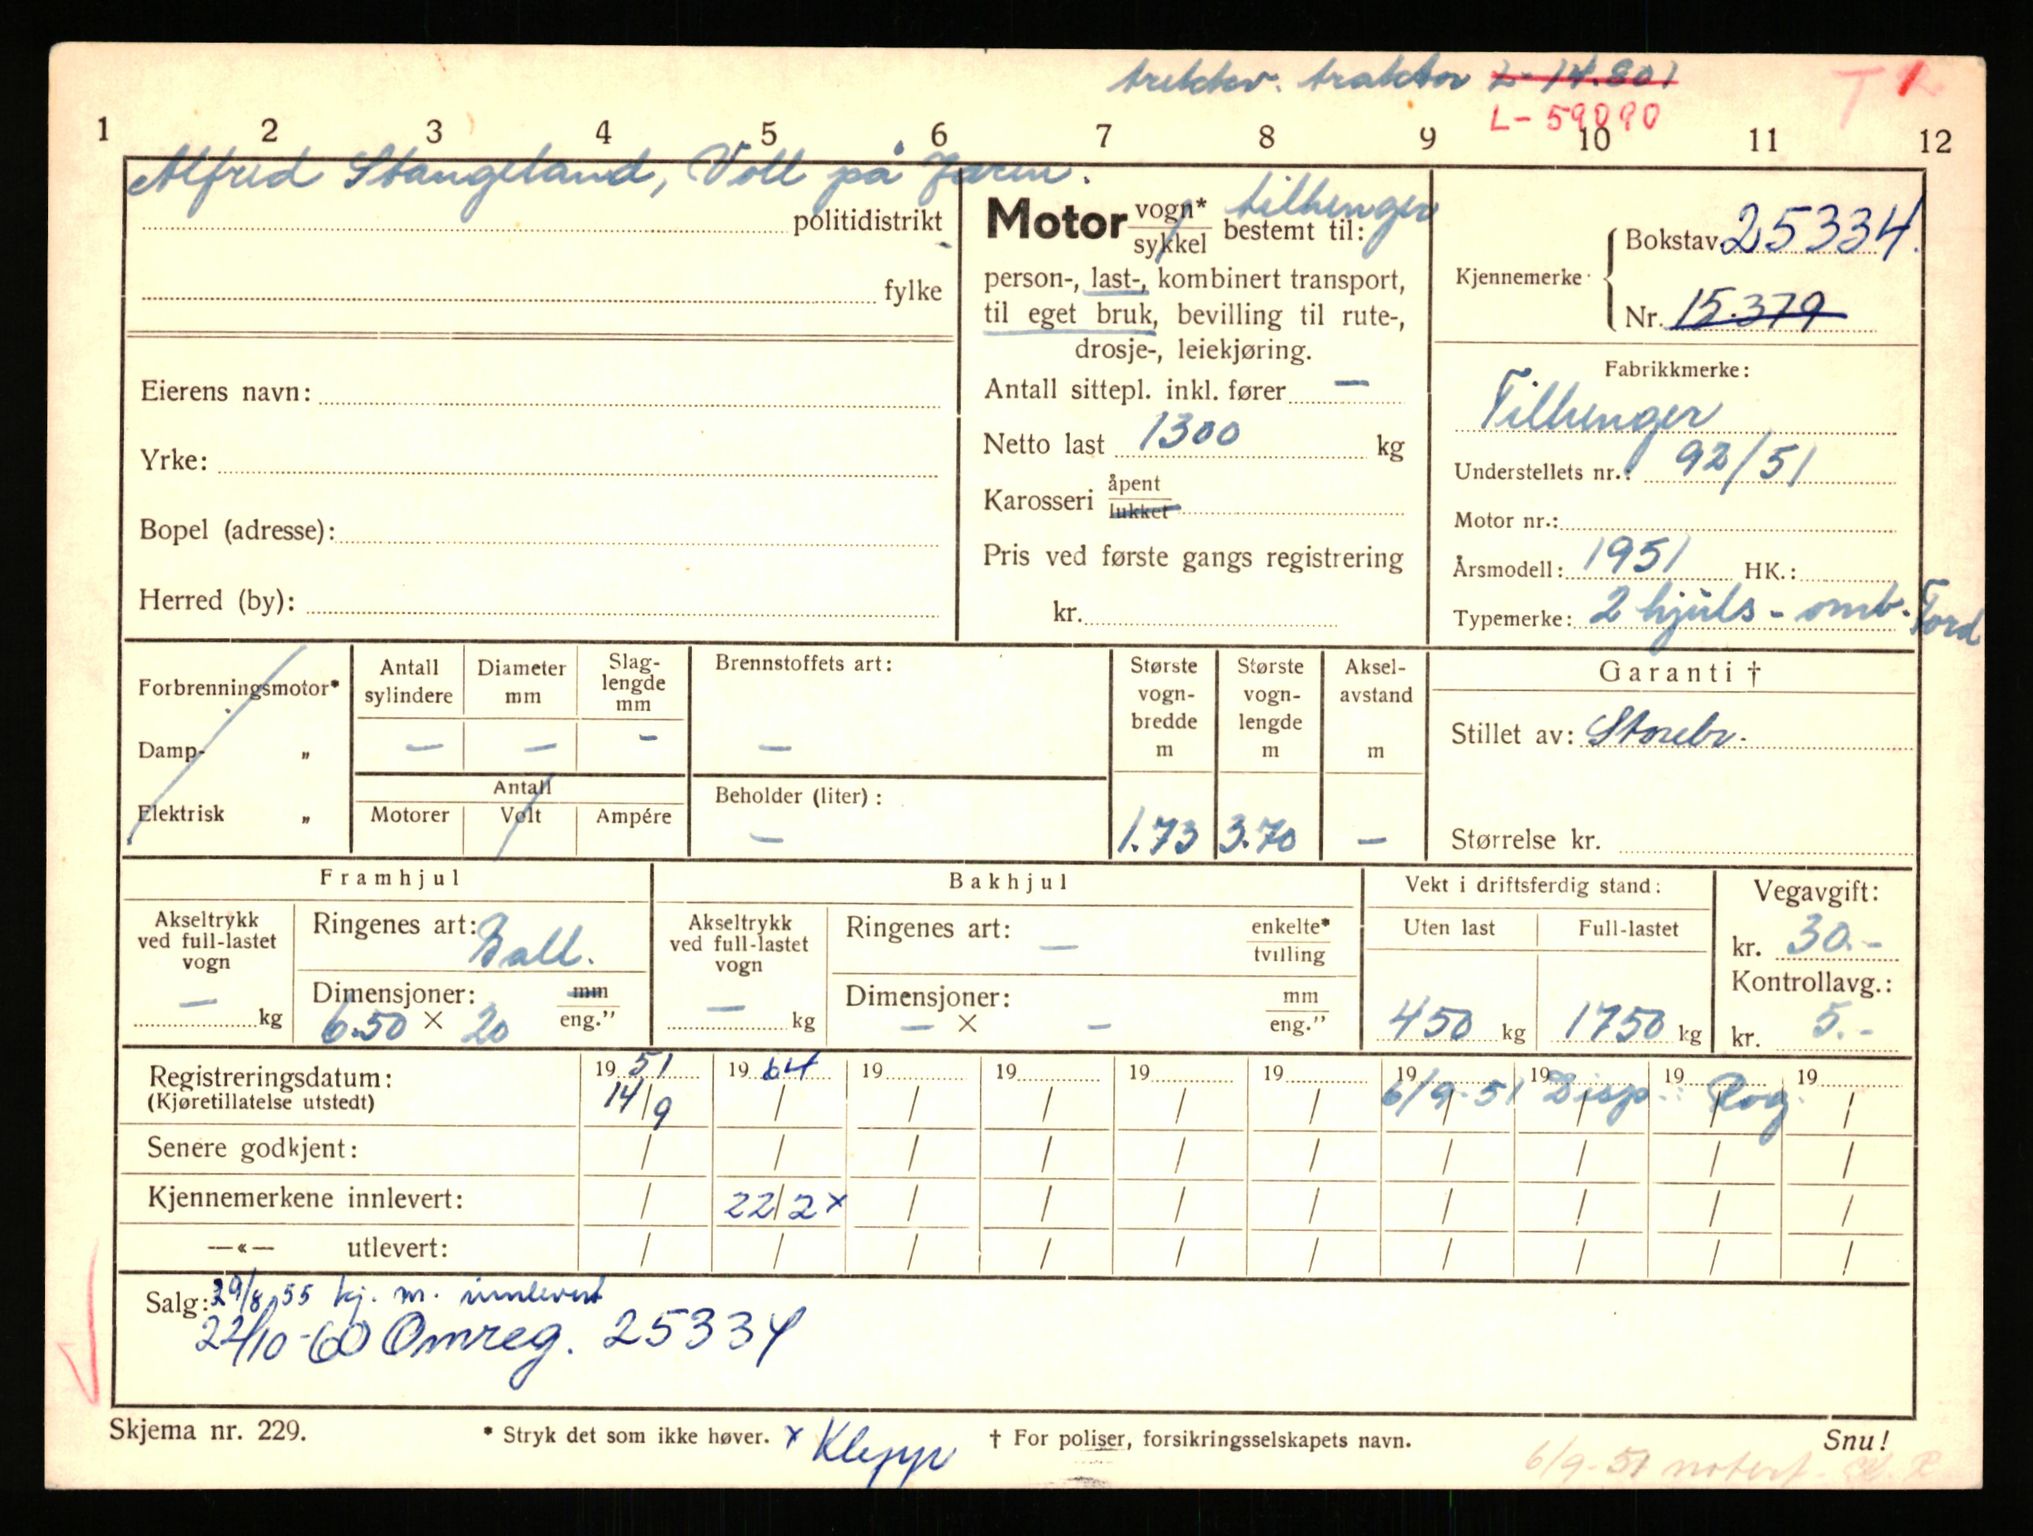 trekkv. traktor L-14.801 T
L-59090
1 2 3 4 5 6 7 8 9 10 11 12
Alfred Stangeland, Voll på Jæren.
politidistrikt
fylke
Eierens navn:
Yrke:
Bopel (adresse):
Herred (by):
Motor vogn* / sykkel bestemt til: tilhenger
person-, last-, kombinert transport,
til eget bruk, bevilling til rute-,
drosje-, leiekjøring.
Antall sittepl. inkl. fører —
Netto last 1300 kg
Karosseri åpent / lukket
Pris ved første gangs registrering
kr.
Kjennemerke
Bokstav 25334.
Nr. 15.379
Fabrikkmerke:
Tilhenger
Understellets nr.: 92/51
Motor nr.:
Årsmodell: 1951 HK.:
Typemerke: 2 hjuls - omb. Ford
Forbrenningsmotor*
Damp- „
Elektrisk „
Antall sylindere —
Diameter mm —
Slag- lengde mm -
Antall
Motorer Volt Ampére
Brennstoffets art: —
Beholder (liter): —
Største vogn- bredde m 1.73
Største vogn- lengde m 3.70
Aksel- avstand m —
Garanti †
Stillet av: Storebr.
Størrelse kr.
Framhjul
Akseltrykk ved full-lastet vogn — kg
Ringenes art: Ball.
Dimensjoner: mm / eng."
6.50 × 20
Bakhjul
Akseltrykk ved full-lastet vogn — kg
Ringenes art: — enkelte* / tvilling
Dimensjoner: mm / eng."
— × —
Vekt i driftsferdig stand:
Uten last 450 kg
Full-lastet 1750 kg
Vegavgift:
kr. 30.-
Kontrollavg.:
kr. 5.-
Registreringsdatum: 19 51 19 64 19 19 19 19 19 19 19 19
(Kjøretillatelse utstedt) 14/9 / / / / / 6/9-51 Disp. Rog. /
Senere godkjent: / / / / / / / / / /
Kjennemerkene innlevert: / 22/2 x / / / / / / / /
—«— utlevert: / / / / / / / / / /
Salg: 29/8 55 kj. m. innlevert
22/10-60 Omreg. 25334
Skjema nr. 229. * Stryk det som ikke høver. x Klepp † For poliser, forsikringsselskapets navn. Snu!
6/9-51 notert